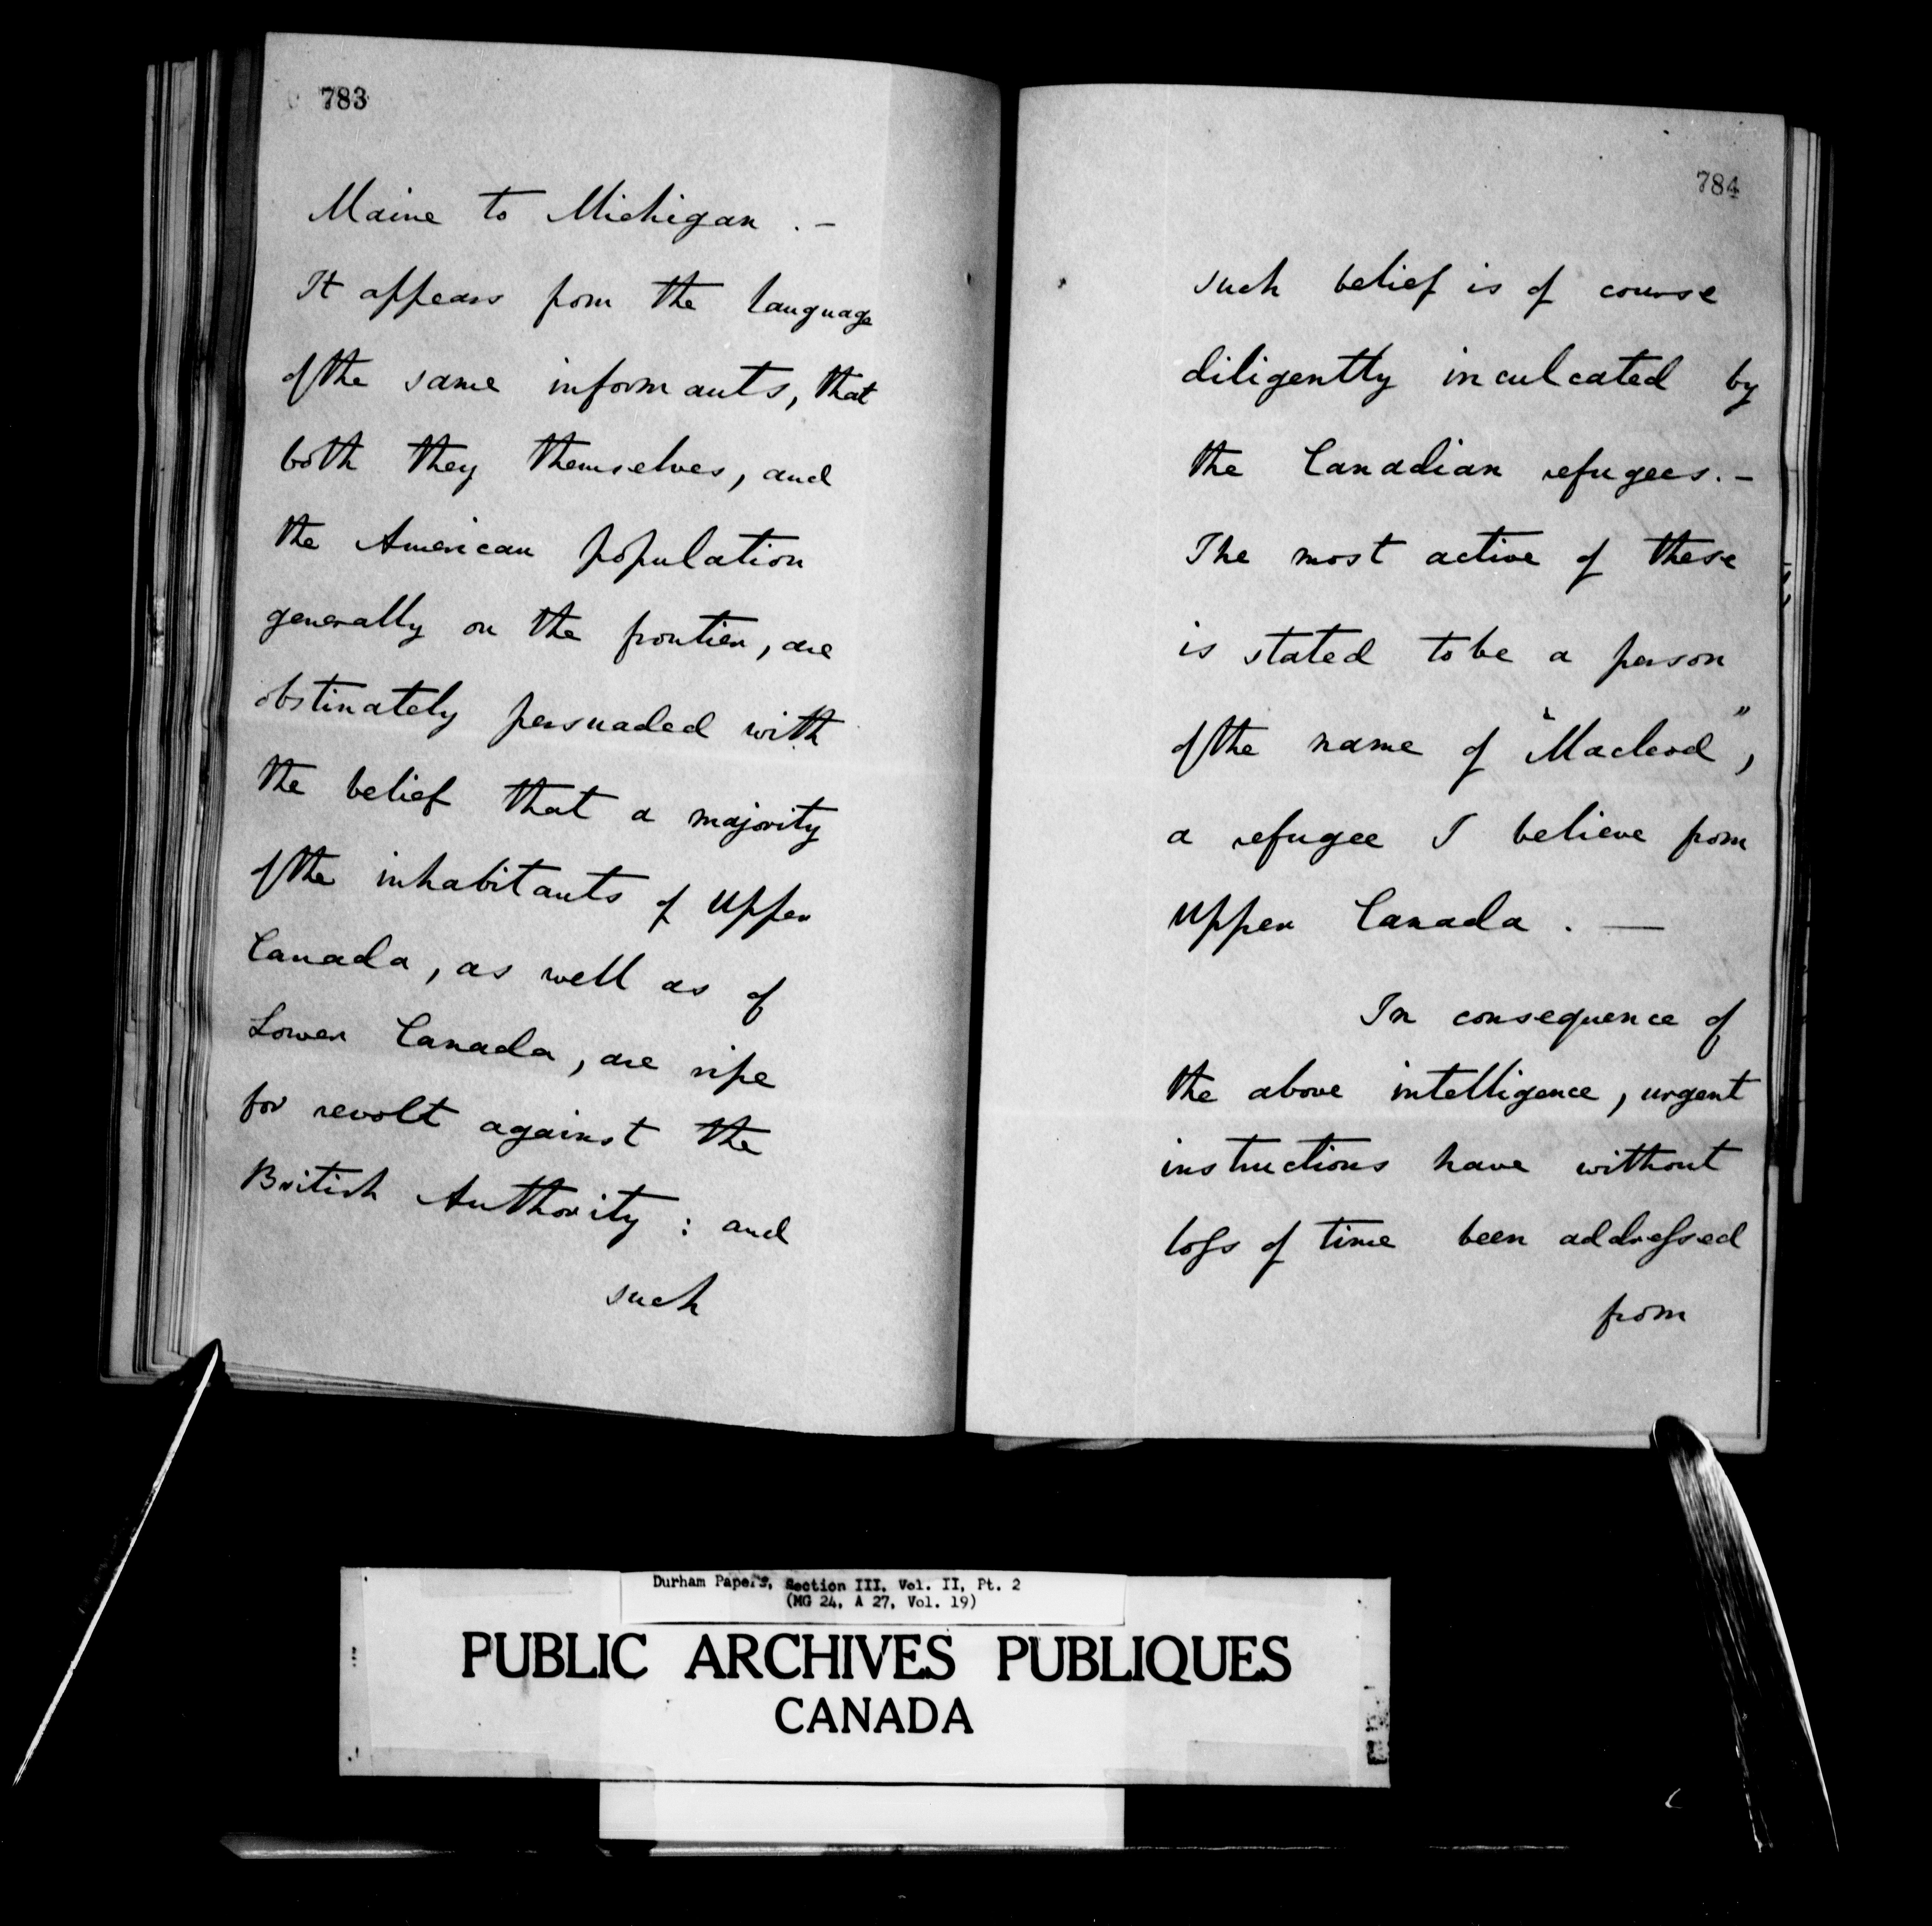 783
Maine to Michigan . -
It appears from the language
of the same informants, that
both they themselves, and
the American population
generally on the frontier, are
obstinately persuaded with
the belief that a majority
of the inhabitants of Upper
Canada, as well as of
Lower Canada, are ripe
for revolt against the
British Authority : and
such
784
such belief is of course
diligently inculcated by
the Canadian refugees. -
The most active of these
is stated to be a person
of the name of "Macleod",
a refugee I believe from
Upper Canada . —
In consequence of
the above intelligence, urgent
instructions have without
loss of time been addressed
from
Durham Papers, Section III, Vol. II, Pt. 2
(MG 24, A 27, Vol. 19)
PUBLIC ARCHIVES PUBLIQUES
CANADA